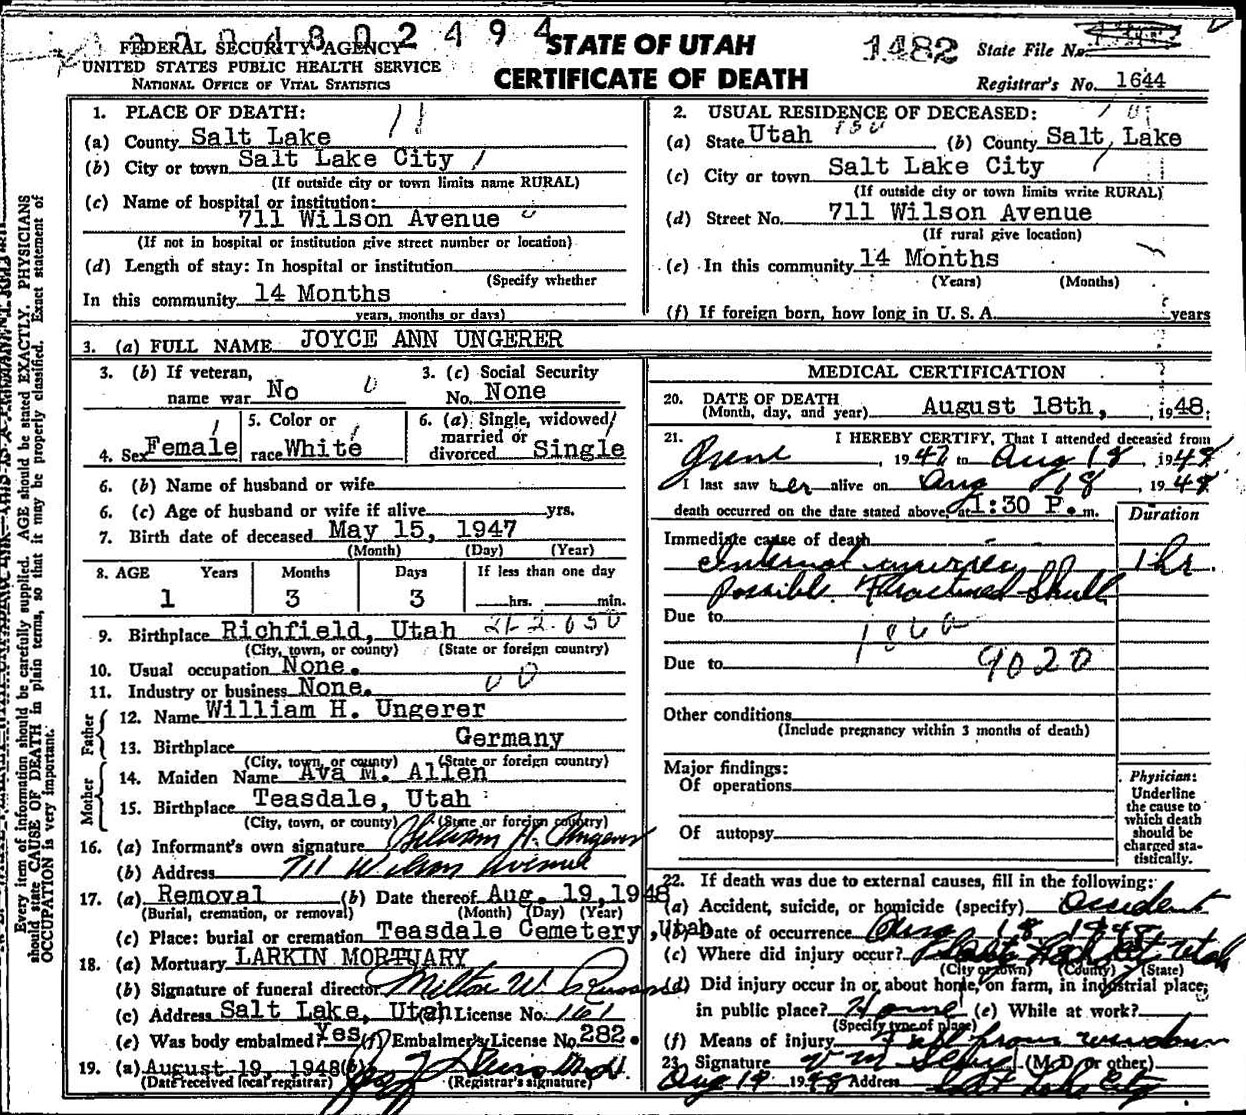 2 4 9 4
FEDERAL SECURITY AGENCY
UNITED STATES PUBLIC HEALTH SERVICE
NATIONAL OFFICE OF VITAL STATISTICS
STATE OF UTAH
CERTIFICATE OF DEATH
1482 State File No.
Registrar's No. 1644
Every item of information should be carefully supplied. AGE should be stated EXACTLY. PHYSICIANS
should state CAUSE OF DEATH in plain terms, so that it may be properly classified. Exact statement of
OCCUPATION is very important.
1. PLACE OF DEATH: 11
(a) County Salt Lake
(b) City or town Salt Lake City /
(If outside city or town limits name RURAL)
(c) Name of hospital or institution:
711 Wilson Avenue
(If not in hospital or institution give street number or location)
(d) Length of stay: In hospital or institution
(Specify whether
In this community 14 Months
years, months or days)
2. USUAL RESIDENCE OF DECEASED:
(a) State Utah (b) County Salt Lake
(c) City or town Salt Lake City
(If outside city or town limits write RURAL)
(d) Street No. 711 Wilson Avenue
(If rural give location)
(e) In this community 14 Months
(Years) (Months)
(f) If foreign born, how long in U. S. A. years
3. (a) FULL NAME JOYCE ANN UNGERER
3. (b) If veteran,
name war No
3. (c) Social Security
No. None
4. Sex Female
5. Color or
race White
6. (a) Single, widowed,
married or
divorced Single
6. (b) Name of husband or wife
6. (c) Age of husband or wife if alive yrs.
7. Birth date of deceased May 15, 1947
(Month) (Day) (Year)
8. AGE Years Months Days If less than one day
1 3 3 hrs. min.
9. Birthplace Richfield, Utah
(City, town, or county) (State or foreign country)
10. Usual occupation None.
11. Industry or business None.
Father
12. Name William H. Ungerer
13. Birthplace Germany
(City, town, or county) (State or foreign country)
Mother
14. Maiden Name Ava M. Allen
15. Birthplace Teasdale, Utah
(City, town, or county) (State or foreign country)
16. (a) Informant's own signature William H. Ungerer
(b) Address 711 Wilson Avenue
17. (a) Removal (b) Date thereof Aug. 19, 1948
(Burial, cremation, or removal) (Month) (Day) (Year)
(c) Place: burial or cremation Teasdale Cemetery, Utah
18. (a) Mortuary LARKIN MORTUARY
(b) Signature of funeral director Milton W.
(c) Address Salt Lake, Utah (d) License No. 161
(e) Was body embalmed? Yes (f) Embalmer's License No. 282.
19. (a) August 19, 1948 (b)
(Date received local registrar) (Registrar's signature)
MEDICAL CERTIFICATION
20. DATE OF DEATH
(Month, day, and year) August 18th, 1948
21. I HEREBY CERTIFY, That I attended deceased from
June, 1947 to Aug 18, 1948
I last saw her alive on Aug 18 1948
death occurred on the date stated above, at 1:30 P. m.
Duration
Immediate cause of death
Internal injuries 1 hr.
possible Fractured Skull
Due to
Due to 9020
Other conditions
(Include pregnancy within 3 months of death)
Major findings:
Of operations
Of autopsy
Physician:
Underline
the cause to
which death
should be
charged sta-
tistically.
22. If death was due to external causes, fill in the following:
(a) Accident, suicide, or homicide (specify) Accident
(b) Date of occurrence Aug 18 1948
(c) Where did injury occur? Salt Lake Utah
(City or town) (County) (State)
(d) Did injury occur in or about home, on farm, in industrial place,
in public place? Home (e) While at work?
(Specify type of place)
(f) Means of injury Fell from window
23. Signature (M.D. or other)
Aug 19 1948 Address Salt Lake City